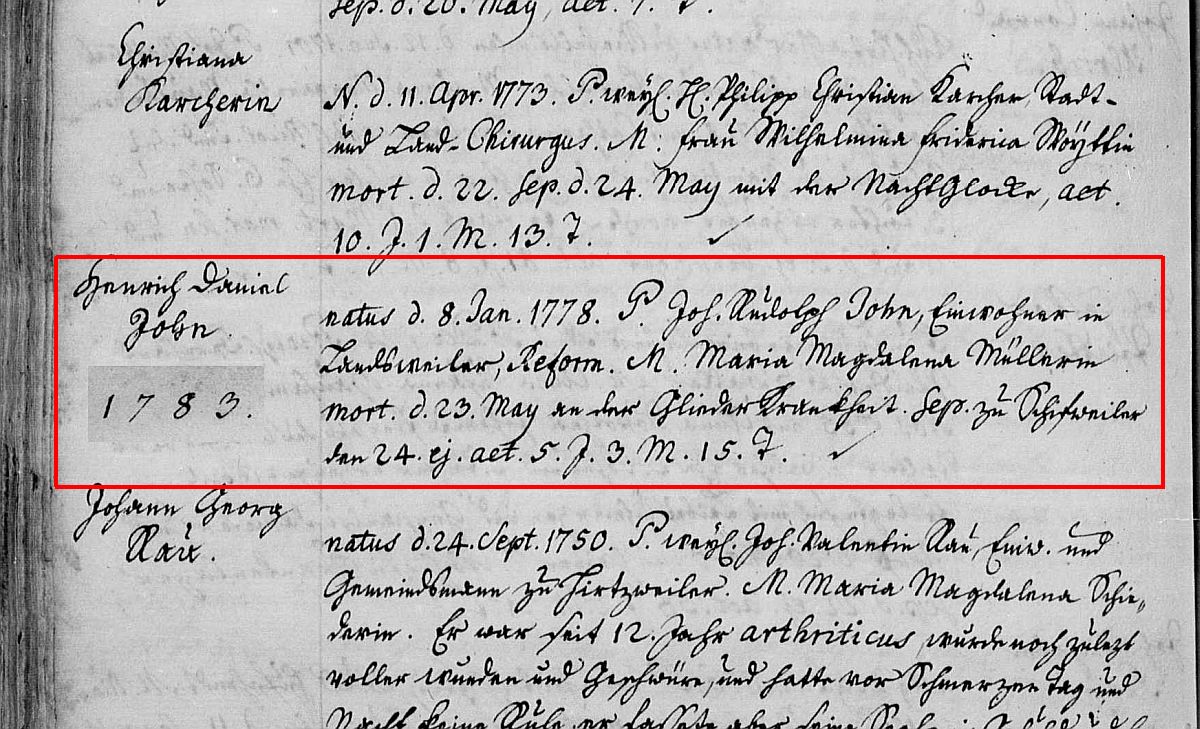 sep. d. 20. May, aet. 7. T.
Christiana
Karcherin
N. d. 11. Apr. 1773. P. weyl. H. Philipp Christian Karcher, Stadt-
und Land-Chirurgus. M: Frau Wilhelmina Friderica Wöyttin
mort. d. 22. sep. d. 24. May mit der NachtGlocke, aet.
10. J. 1. M. 13. T.
Henrich Daniel
John.
1783.
natus d. 8. Jan. 1778. P. Joh. Rudolph John, Einwohner in
Landsweiler, Reform. M. Maria Magdalena Müllerin
mort. d. 23. May an der GliederKrankheit. sep. zu Schifweiler
den 24. ej. aet. 5. J. 3. M. 15. T.
Johann Georg
Rau.
natus d. 24. Sept. 1750. P. weyl. Joh. Valentin Rau, Einw. und
Gemeindsmann zu Hirtzweiler. M. Maria Magdalena Schie-
derin. Er war seit 12. Jahr arthriticus, wurde noch zulezt
voller wunden und Geschwüre, und hatte vor Schmerzen Tag und
Nacht keine Ruhe, er fassete aber seine Seele in